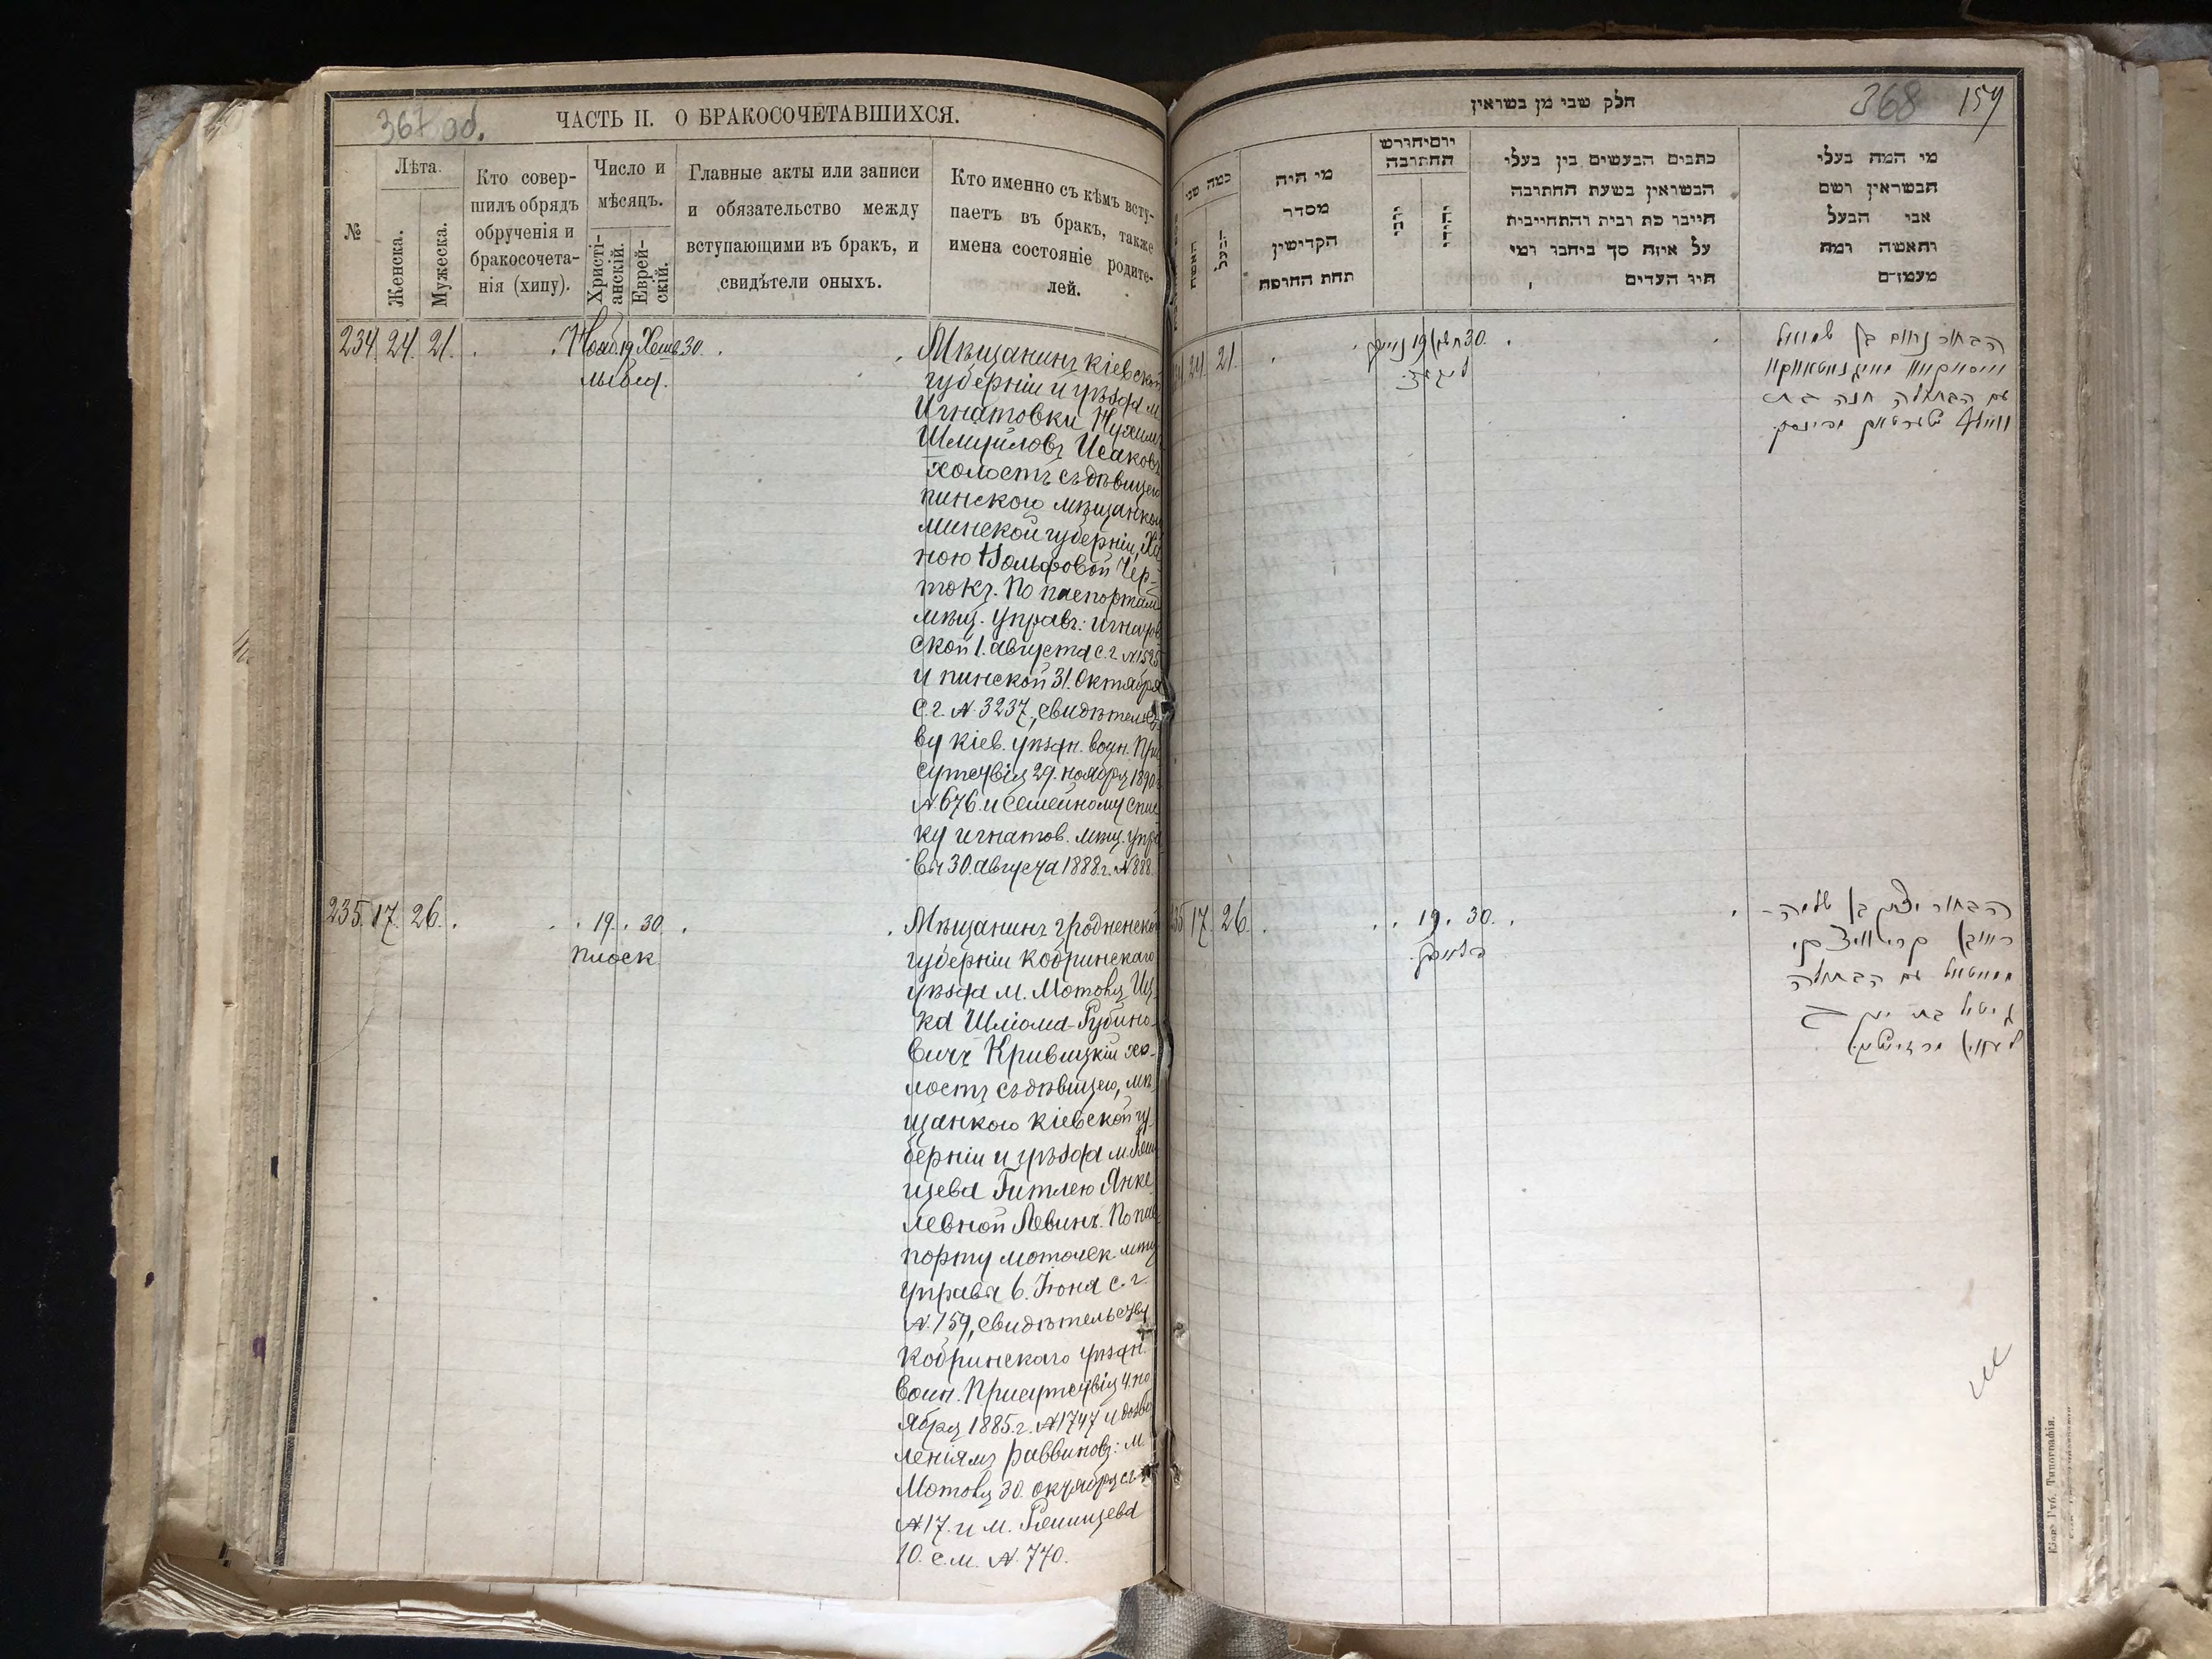 367 об.
ЧАСТЬ II. О БРАКОСОЧЕТАВШИХСЯ.
№
Лѣта.
Женска.
Мужеска.
Кто совер-
шилъ обрядъ
обрученія и
бракосочета-
нія (хипу).
Число и
мѣсяцъ.
Христі-
анскій.
Еврей-
скій.
Главные акты или записи
и обязательство между
вступающими въ бракъ, и
свидѣтели оныхъ.
Кто именно съ кѣмъ всту-
паетъ въ бракъ, также
имена состояніе родите-
лей.
234. 24. 21. Нояб. 19 Хешв 30.
лыбед.
Мѣщанинъ кіевской
губерніи и уѣзда м
Игнатовки Нухимъ
Шмуйловъ Исаковъ
холостъ съ дѣвицею
пинскою мѣщанкою
минской губерніи, Ха
ною Вольфовой Чер-
токъ. По паспортамъ
мѣщ. управъ: игнатов
ской 1. августа с. г. №1525
и пинской 31. Октября
с. г. № 3237, свидѣтельст
ву кіев. уѣздн. воин. При
сутствія 29. ноября 1890г
№ 676. и Семейному спис
ку игнатов. мѣщ. упра
вы 30. августа 1888 г. №888
235. 17. 26. 19. 30
плоск
Мѣщанинъ гродненской
губерніи Кобринскаго
уѣзда м. Мотоля Иц
ка Шліома-Рубино-
вичъ Кривицкій хо-
лостъ съ дѣвицею, мѣ
щанкою кіевской гу
берніи и уѣзда м. Ржи
щева Гитлею Янке
левной Левинъ. По пас
порту мотольск. мѣщ
управы 6. Іюня с. г.
№ 159, свидѣтельству
Кобринскаго уѣздн.
воин. Присутствія 4. но
ября 1885 г. №1747 и дозво
леніямъ раввиновъ: м.
Мотоля 30. октября с. г
№17. и м. Ржищева
10. с. м. № 770.
368
159
חלק שני מן בשואין
כמה שני
האשה
הבעל
מי היה
מסדר
הקדישין
תחת החופה
יום וחודש
החתונה
כתבים הנעשים בין בעלי
הנשואין בשעת החתונה
חיובי כת ובית והתחייבות
על איזה סך ביחבר ומי
היו העדים
מי המה בעלי
הנשואין ושם
אבי הבעל
והאשה ומה
מעמדם
24. 21. 19 30.
הבחור נחום בן שמואל
עם הבתולה חנה בת
35 17 26. 19. 30.
הבחור יצחק בן שלמה
ראובן קריוויצקי
מאטאל עם הבתולה
גיטל בת יעקב
Кіевъ Губ. Типографія.